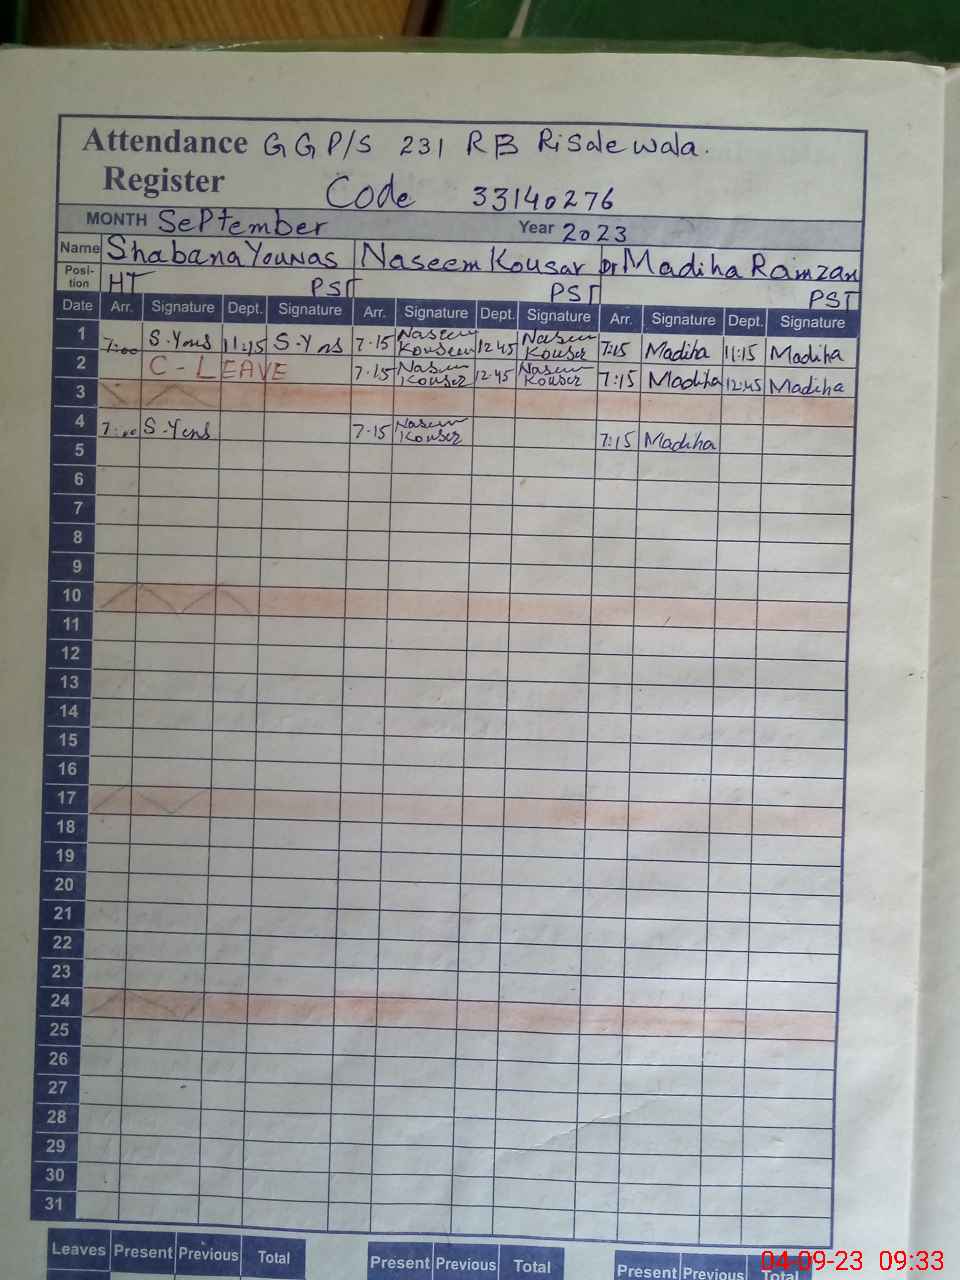 Attendance GGP/S 231 RB Risalewala.
Register Code 33140276
MONTH September Year 2023
Name Shabana Younas Naseem Kousar Dr Madiha Ramzan
Posi-
tion HT PST PST PST
Date Arr. Signature Dept. Signature Arr. Signature Dept. Signature Arr. Signature Dept. Signature
1 7:00 S.Yons 11:15 S.Yons 7.15 Naseem Kouser 12 45 Naseem Kouser 7:15 Madiha 11:15 Madiha
2 C - LEAVE 7.15 Naseem Kouser 12.45 Naseem Kouser 7:15 Madiha 12:45 Madiha
3
4 7:00 S.Yons 7.15 Naseem Kouser 7:15 Madiha
5
6
7
8
9
10
11
12
13
14
15
16
17
18
19
20
21
22
23
24
25
26
27
28
29
30
31
Leaves Present Previous Total Present Previous Total Present Previous Total
04-09-23 09:33